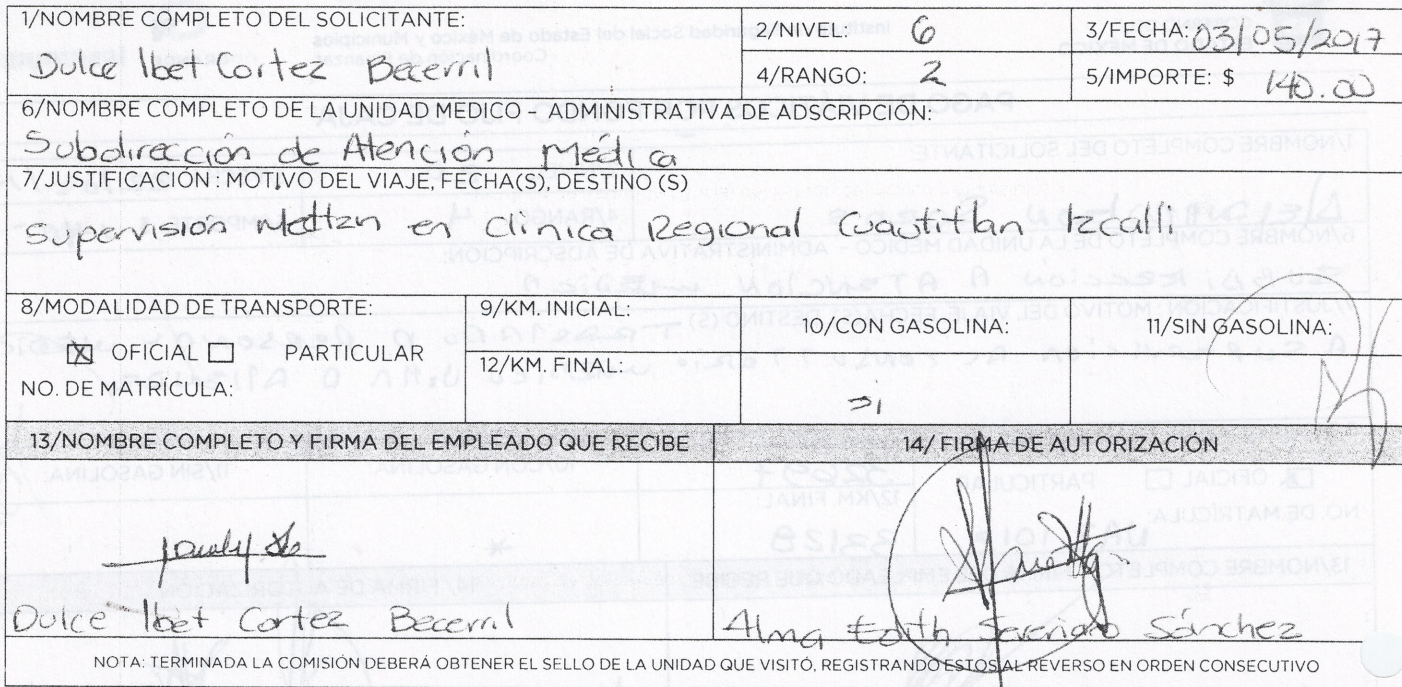 1/NOMBRE COMPLETO DEL SOLICITANTE:
Dulce Ibet Cortez Becerril
2/NIVEL: 6
3/FECHA: 03/05/2017
4/RANGO: 2
5/IMPORTE: $ 140.00
6/NOMBRE COMPLETO DE LA UNIDAD MEDICO - ADMINISTRATIVA DE ADSCRIPCIÓN:
Subdirección de Atención Médica
7/JUSTIFICACIÓN : MOTIVO DEL VIAJE, FECHA(S), DESTINO (S)
Supervisión en Clínica Regional Cuautitlan Izcalli
8/MODALIDAD DE TRANSPORTE:
9/KM. INICIAL:
10/CON GASOLINA:
11/SIN GASOLINA:
☒ OFICIAL ☐ PARTICULAR
12/KM. FINAL:
NO. DE MATRÍCULA:
13/NOMBRE COMPLETO Y FIRMA DEL EMPLEADO QUE RECIBE
14/ FIRMA DE AUTORIZACIÓN
Dulce Ibet Cortez Becerril
Alma Edith Sánchez
NOTA: TERMINADA LA COMISIÓN DEBERÁ OBTENER EL SELLO DE LA UNIDAD QUE VISITÓ, REGISTRANDO ESTOS AL REVERSO EN ORDEN CONSECUTIVO